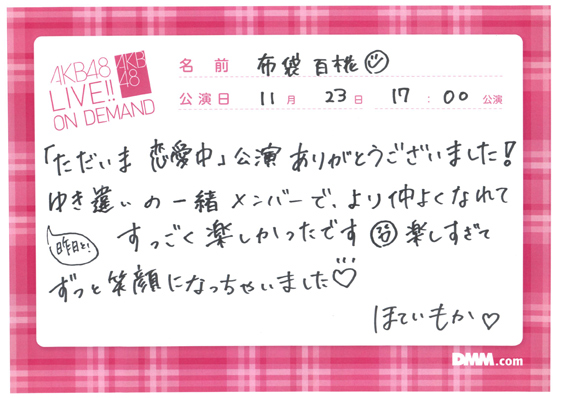 AKB48
LIVE!!
ON DEMAND
AKB
48
名前 布袋 百椛
公演日 11月 23日 17:00公演
「ただいま 恋愛中」公演 ありがとうございました!
ゆき違いの一緒メンバーで、より仲よくなれて
昨日と! すっごく楽しかったです 楽しすぎて
ずっと笑顔になっちゃいました♡
ほていもか♡
DMM.com